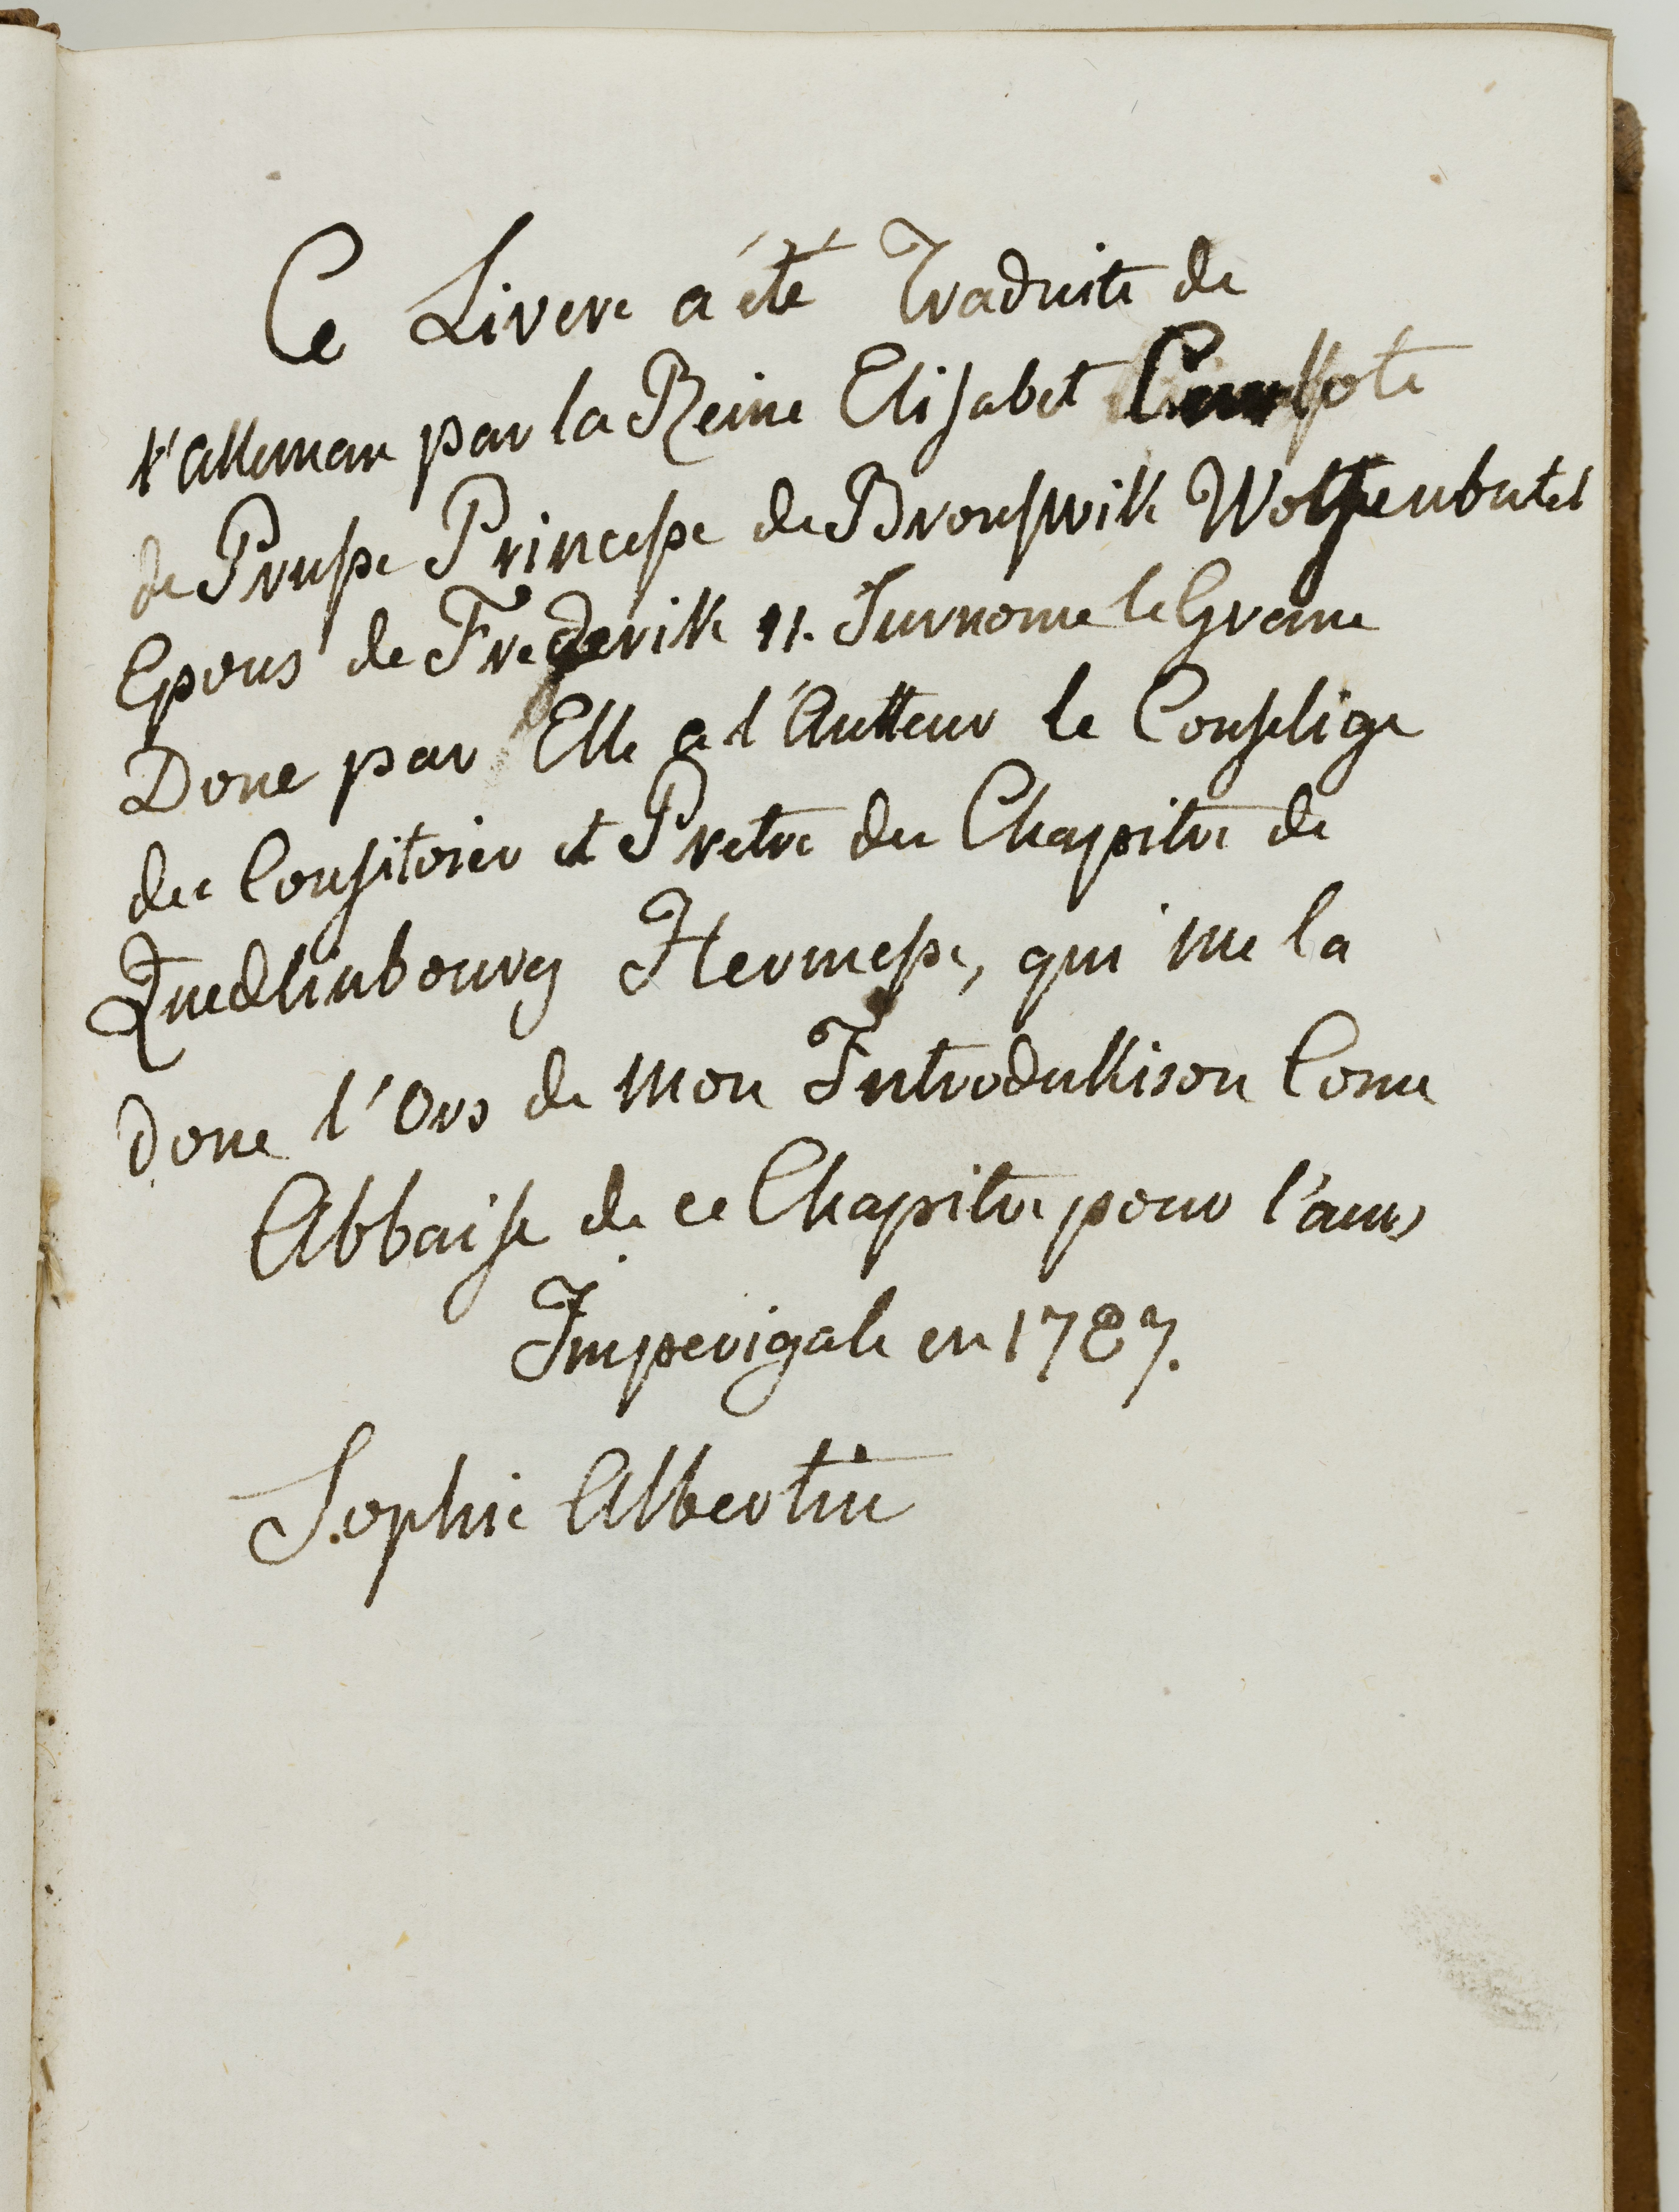 Ce Livere a été Traduite de
l'alleman par la Reine Elisabet
de Prusse Princesse de Brouswik Wolfenbutel
Epous de Frederik II. Surnome le Grane
Done par Elle a l'Autteur le Conseligé
du Consitoier et Pretre du Chapitre de
Quedlinbourg Hermesse, qui me la
done l'Ors de mon Introduktison Come
Abbaisse de ce Chapitre pour l'anné
Imperigale en 1787.
Sophie Albertine